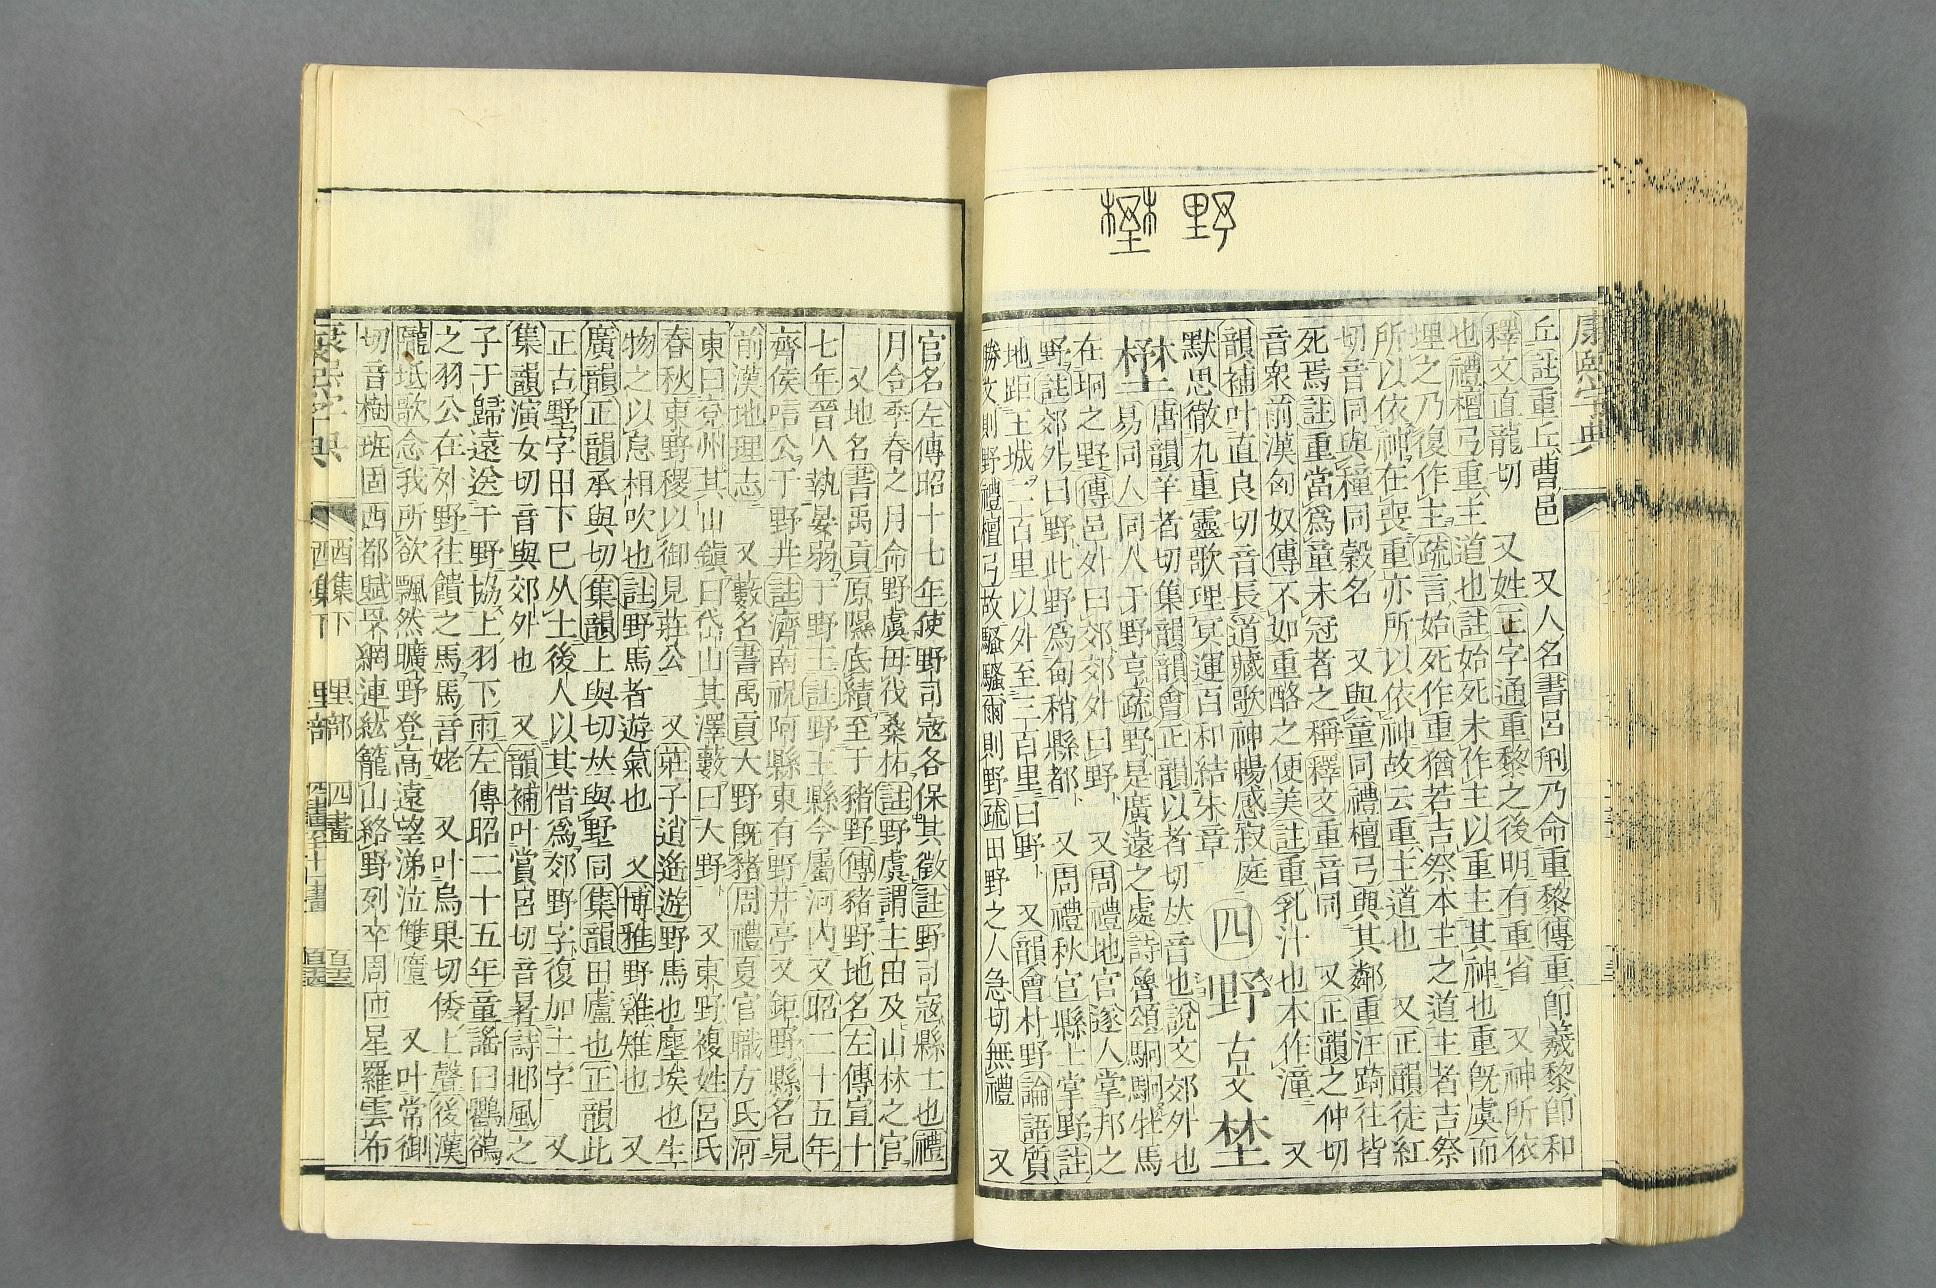 野
壄
康熙字典
丘註重丘曹邑　又人名書呂𠛬乃命重黎傳重卽羲黎卽和
釋文直龍切　又姓正字通重黎之後明有重省　又神所依
也禮檀弓重主道也註始死未作主以重主其神也重旣虞而
埋之乃復作主疏言始死作重猶若吉祭木主之道主者吉祭
所以依神在喪重亦所以依神故云重主道也　又正韻徒紅
切音同與穜同穀名　又與童同禮檀弓與其鄰重汪踦往皆
死焉註重當爲童未冠者之稱釋文重音同　又正韻之仲切
音衆前漢匈奴傳不如重酪之便美註重乳汁也本作湩　又
韻補叶直良切音長道藏歌神暢感寂庭
默思徹九重靈歌理冥運百和結朱章
四　野　古文　埜
壄　唐韻羊者切集韻韻會正韻以者切𠀤音也說文郊外也
易同人同人于野亨疏野是廣遠之處詩魯頌駉駉牡馬
在坰之野傳邑外曰郊郊外曰野　又周禮地官遂人掌邦之
野註郊外曰野此野爲甸稍縣都　又周禮秋官縣士掌野註
地距王城二百里以外至三百里曰野　又韻會朴野論語質
勝文則野禮檀弓故騷騷爾則野疏田野之人急切無禮　又
官名左傳昭十七年使野司寇各保其徵註野司寇縣士也禮
月令季春之月命野虞毋伐桑柘註野虞謂主田及山林之官
又地名書禹貢原隰底績至于豬野傳豬野地名左傳宣十
七年晉人執晏弱于野王註野王縣今屬河內又昭二十五年
齊侯唁公于野井註濟南祝阿縣東有野井亭又鉅野縣名見
前漢地理志　又藪名書禹貢大野旣豬周禮夏官職方氏河
東曰兗州其山鎭曰岱山其澤藪曰大野　又東野複姓呂氏
春秋東野稷以御見莊公　又莊子逍遙遊野馬也塵埃也生
物之以息相吹也註野馬者遊氣也　又博雅野雞雉也　又
廣韻正韻承與切集韻上與切𠀤與墅同集韻田廬也正韻此
正古野字田下已从土後人以其借爲郊野字復加土字　又
集韻演女切音與郊外也　又韻補叶賞呂切音暑詩邶風之
子于歸遠送于野協上羽下雨左傳昭二十五年童謠曰鸜鵒
之羽公在外野往饋之馬馬音姥　又叶烏果切倭上聲後漢
隴坻歌念我所欲飄然曠野登高遠望涕泣雙墮　又叶常御
切音樹班固西都賦罘網連紘籠山絡野列卒周匝星羅雲布
康熙字典　酉集下　里部　四畫